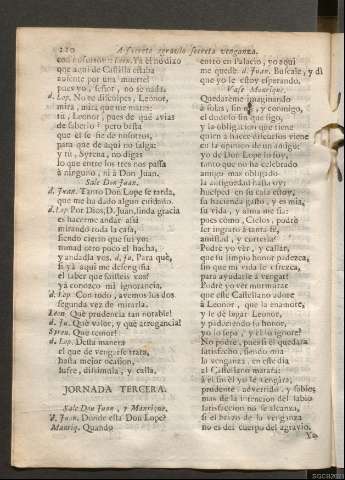 220
A secreto agravio secreta venganza.
que aqui de Castilla estaba
ausente por una muerte?
pues yo, señor, no sé nada.
d. Lop. No te disculpes, Leonor,
mira, mira que me matas:
tú, Leonor, pues de qué avias
de saberlo? pero basta
que él se fie de nosotros,
para que de aqui no salga:
y tú, Syrena, no digas
lo que entre los tres nos passa
à ninguno, ni à Don Juan.
Sale Don Juan.
d. Juan. Tanto Don Lope se tarda,
que me ha dado algun cuidado.
d. Lop. Por Dios, D. Juan, linda gracia
es hacerme andar assi
mirando toda la casa,
siendo cierto que fui yo:
tomad otro poco el hacha,
y andadla vos. d. Ju. Para què,
si yà aqui me desengaña
el saber que fuisteis vos?
yà conozco mi ignorancia.
d. Lop. Con todo, avemos los dos
segunda vez de mirarla.
Leon. Què prudencia tan notable!
d. Ju. Què valor, y què arrogancia!
Syren. Que temor!
d. Lop. Desta manera
el que de vengarse trata,
hasta mejor ocasion,
sufre, dissimula, y calla.
JORNADA TERCERA.
Sale Don Juan, y Manrique.
d. Juan. Donde està Don Lope?
Manriq. Quando
entrò en Palacio, yo aqui
me quedè. d. Juan. Buscale, y di
que yo le estoy esperando.
Vase Manrique.
Quedaréme imaginando
à solas, sin mi, y conmigo,
el dudoso fin que sigo,
y la obligacion que tiene
quien à hacer discursos viene
en la opinion de un amigo:
yo de Don Lope lo soy,
tanto que no ha celebrado
amigo mas obligado
la antiguedad hasta oy:
huesped en su casa estoy,
su hacienda gasto, y es mia,
su vida, y alma me fia:
pues còmo, Cielos, podrè
ser ingrato à tanta fé,
amistad, y cortesia?
Podrè yo ver, y callar,
que su limpio honor padezca,
sin que mi vida se ofrezca,
para ayudarle à vengar?
Podrè yo ver murmurar
que este Castellano adore
à Leonor, que la enamore,
y le dé lugar Leonor,
y padeciendo su honor,
yo lo sepa, y él lo ignore?
No podrè, pues si él quedara
satisfecho, siendo mia
la venganza, en este dia
al Castellano matara:
à él sin él yo le vengara,
prudente, advertido, y sabio;
mas de la intencion del labio
satisfaccion no se alcanza,
si el brazo de la venganza
no es del cuerpo del agravio.
Yo